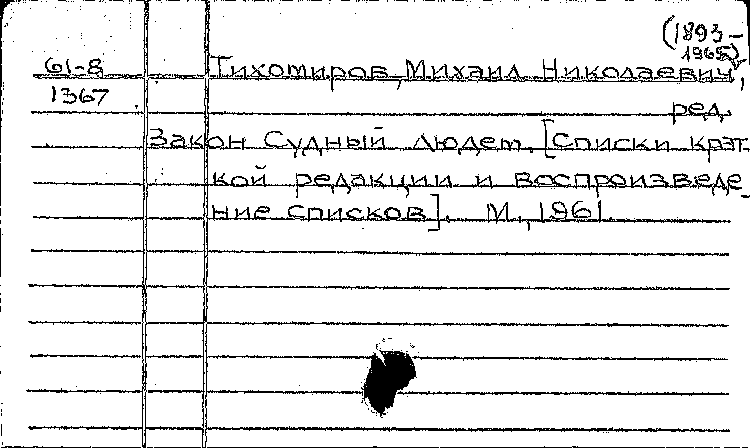 (1893-
1965)
61-8
Тихомиров, Михаил Николаевич,
1367
ред.
Закон Судный людем. [Списки крат-
кой редакции и воспроизведе-
ние списков]. М., 1961